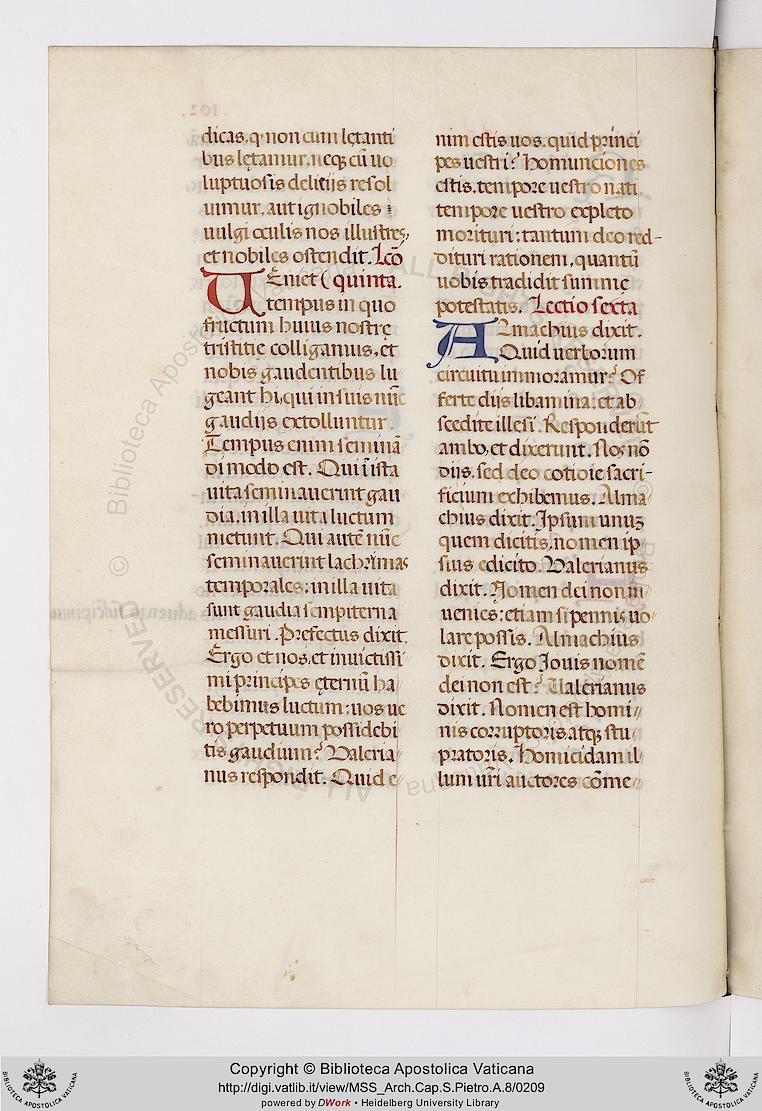 dicas, q; non cum lętanti
bus lętamur, neq; cũ uo
luptuosis delitijs resol
uimur, aut ignobiles
uulgi oculis nos illustres,
et nobiles ostendit. Lcõ
UEniet ( quinta.
tempus in quo
fructum huius nostrę
tristitię colligamus, et
nobis gaudentibus lu
geant hi, qui in suis nũc
gaudijs extolluntur.
Tempus enim seminã
di modo est. Qui ĩ ista
uita seminauerint gau
dia, in illa uita luctum
metunt. Qui autẽ nũc
seminauerint lachrimas
temporales: in illa uita
sunt gaudia sempiterna
messuri. Prefectus dixit.
Ergo et nos, et inuictissi
mi principes ęternũ ha
bebimus luctum: uos ue
ro perpetuum possidebi
tis gaudium? Valeria
nus respondit. Quid e
nim estis uos, quid princi
pes uestri? Homunciones
estis, tempore uestro nati
tempore uestro expleto
morituri: tantum deo red-
dituri rationem, quantũ
uobis tradidit summę
potestatis. Lectio sexta
ALmachius dixit.
Quid uerborum
circuitu immoramur? Of
ferte dijs libamina: et ab
scedite illesi. Responderũt
ambo, et dixerunt. Nos nõ
dijs, sed deo cotidie sacri-
ficium exhibemus. Alma
chius dixit. Ipsum unuz
quem dicitis, nomen ip
sius edicito. Valerianus
dixit. Nomen dei non in
uenies: etiam si pennis uo
lare possis. Almachius
dixit. Ergo Iouis nomẽ
dei non est? Valerianus
dixit. Nomen est homi
nis corruptoris atq; stu
pratoris. Homicidam il
lum ur̃i auctores cõme
102.
Copyright © Biblioteca Apostolica Vaticana
http://digi.vatlib.it/view/MSS_Arch.Cap.S.Pietro.A.8/0209
powered by DWork • Heidelberg University Library